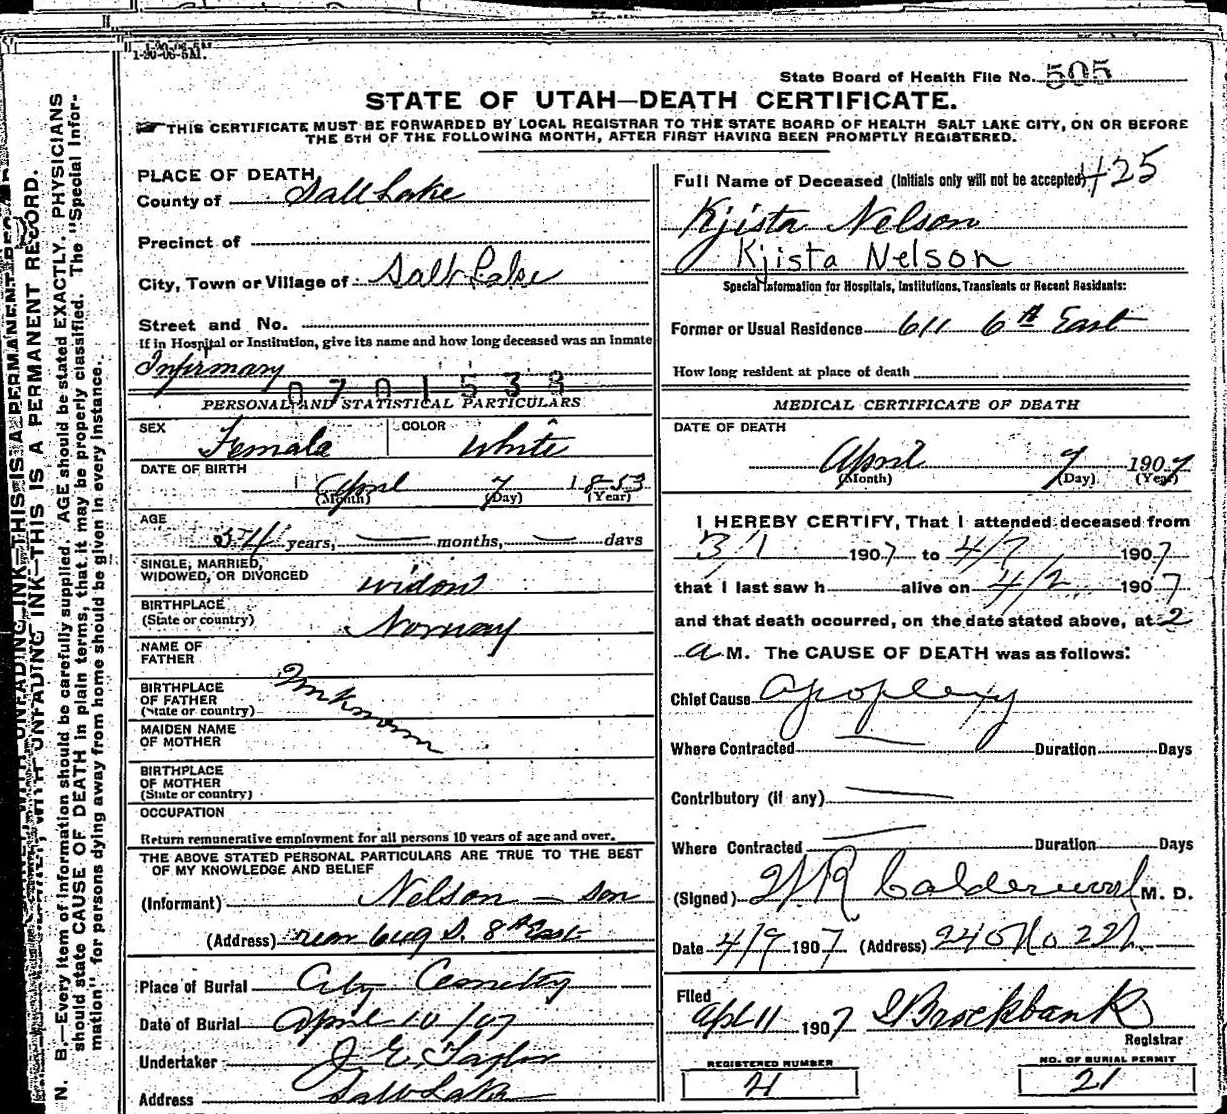 1-20-06-5M.
State Board of Health File No. 505
STATE OF UTAH—DEATH CERTIFICATE.
THIS CERTIFICATE MUST BE FORWARDED BY LOCAL REGISTRAR TO THE STATE BOARD OF HEALTH SALT LAKE CITY, ON OR BEFORE
THE 5TH OF THE FOLLOWING MONTH, AFTER FIRST HAVING BEEN PROMPTLY REGISTERED.
N. B.—Every item of information should be carefully supplied. AGE should be stated EXACTLY. PHYSICIANS
should state CAUSE OF DEATH in plain terms, that it may be properly classified. The "Special Infor-
mation" for persons dying away from home should be given in every instance.
WITH UNFADING INK—THIS IS A PERMANENT RECORD.
PLACE OF DEATH,
County of Salt Lake
Precinct of
City, Town or Village of Salt Lake
Street and No.
If in Hospital or Institution, give its name and how long deceased was an Inmate
Infirmary
0701533
PERSONAL AND STATISTICAL PARTICULARS
SEX Female COLOR White
DATE OF BIRTH
April 7 1853
(Month) (Day) (Year)
AGE
54 years, — months, — days
SINGLE, MARRIED,
WIDOWED, OR DIVORCED widow
BIRTHPLACE
(State or country) Norway
NAME OF
FATHER
Unknown
BIRTHPLACE
OF FATHER
(State or country)
MAIDEN NAME
OF MOTHER
BIRTHPLACE
OF MOTHER
(State or country)
OCCUPATION
Return remunerative employment for all persons 10 years of age and over.
THE ABOVE STATED PERSONAL PARTICULARS ARE TRUE TO THE BEST
OF MY KNOWLEDGE AND BELIEF
(Informant) Nelson — son
(Address) rear 649 S. 8th East
Place of Burial City Cemetry
Date of Burial April 10/07
Undertaker J. E. Taylor
Address Salt Lake
Full Name of Deceased (Initials only will not be accepted) 425
Kjista Nelson
Kjista Nelson
Special Information for Hospitals, Institutions, Transients or Recent Residents:
Former or Usual Residence 611 6th East
How long resident at place of death
MEDICAL CERTIFICATE OF DEATH
DATE OF DEATH
April 7 1907
(Month) (Day) (Year)
I HEREBY CERTIFY, That I attended deceased from
3/1 1907 to 4/7 1907
that I last saw h alive on 4/2 1907
and that death occurred, on the date stated above, at 2
a M. The CAUSE OF DEATH was as follows:
Chief Cause Apoplexy
Where Contracted — Duration Days
Contributory (if any) —
Where Contracted — Duration Days
(Signed) Calderwood M. D.
Date 4/9 1907 (Address)
Filed Apl 11 1907 Brockbank
Registrar
REGISTERED NUMBER
NO. OF BURIAL PERMIT
21